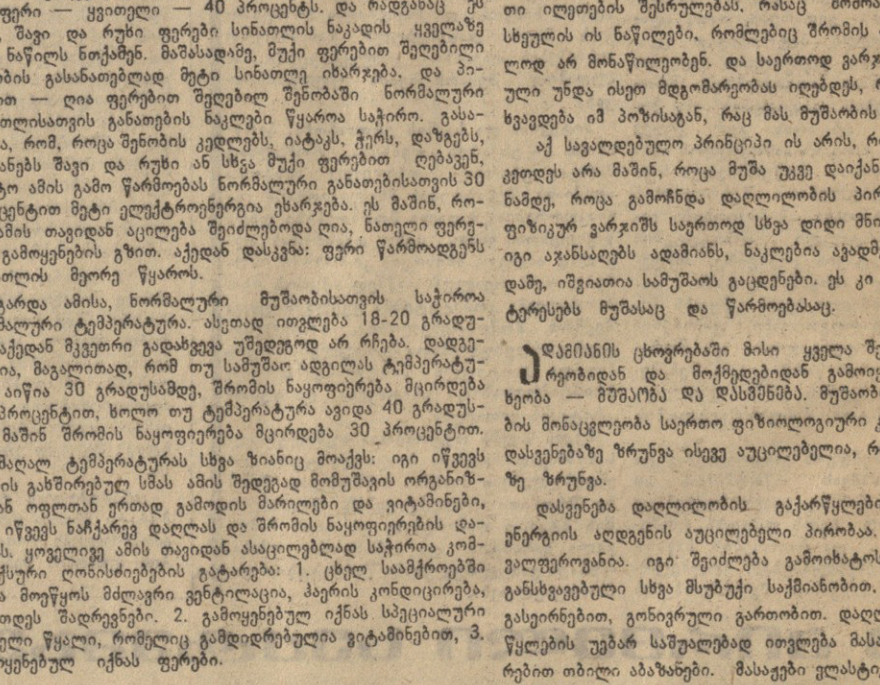 ფერი — ყვითელი — 40 პროცენტს. და რადგანაც ეს
შავი და რუხი ფერები სინათლის ნაკადის ყველაზე
ნაწილს ნთქამენ. მაშასადამე, მუქი ფერებით შეღებილი
ობის გასანათებლად მეტი სინათლე იხარჯება, და პი-
ით — ღია ფერებით შეღებილ შენობაში ნორმალური
თლისათვის განათების ნაკლები წყაროა საჭირო. გასა-
ა, რომ, როცა შენობის კედლებს, იატაკს, ჭერს, დაზგებს,
ანებს შავი და რუხი ან სხვა მუქი ფერებით ღებავენ,
ტო ამის გამო წარმოებას ნორმალური განათებისათვის 30
ცენტით მეტი ელექტროენერგია ეხარჯება. ეს მაშინ, რო-
ამის თავიდან აცილება შეიძლებოდა ღია, ნათელი ფერე-
გამოყენების გზით. აქედან დასკვნა: ფერი წარმოადგენს
თლის მეორე წყაროს.
გარდა ამისა, ნორმალური მუშაობისათვის საჭიროა
მალური ტემპერატურა. ასეთად ითვლება 18-20 გრადუ-
აქედან მკვეთრი გადახვევა უშედეგოდ არ რჩება. დადგე-
ია, მაგალითად, რომ თუ სამუშაო ადგილას ტემპერატუ-
აიწია 30 გრადუსამდე, შრომის ნაყოფიერება მცირდება
პროცენტით, ხოლო თუ ტემპერატურა ავიდა 40 გრადუს-
მაშინ შრომის ნაყოფიერება მცირდება 30 პროცენტით.
მაღალ ტემპერატურას სხვა ზიანიც მოაქვს: იგი იწვევს
ის გახშირებულ სმას ამის შედეგად მომუშავის ორგანიზ-
ან ოფლთან ერთად გამოდის მარილები და ვიტამინები,
იწვევს ნაჩქარევ დაღლას და შრომის ნაყოფიერების და-
ს. ყოველივე ამის თავიდან ასაცილებლად საჭიროა კომ-
ქსური ღონისძიებების გატარება: 1. ცხელ საამქროებში
ა მოეწყოს მძლავრი ვენტილაცია, ჰაერის კონდიცირება,
თდეს შადრევნები. 2. გამოყენებულ იქნას სპეციალური
ელი წყალი, რომელიც გამდიდრებულია ვიტამინებით, 3.
ოყენებულ იქნას ფერები.
თი ილეთების შესრულებას, რასაც
სხეულის ის ნაწილები, რომლებიც შრომის
ლოდ არ მონაწილეობენ. და საერთოდ ვარჯ
ული უნდა ისეთ მდგომარეობას იღებდეს,
ხვავდება იმ პოზისაგან, რაც მას მუშაობის
აქ სავალდებულო პრინციპი ის არის,
კეთდეს არა მაშინ, როცა მუშა უკვე დაიქან
ნამდე, როცა გამოჩნდა დაღლილობის პირ
ფიზიკურ ვარჯიშს საერთოდ სხვა დიდი მნი
იგი აჯანსაღებს ადამიანს, ნაკლებია ავადმ
დამე, იშვიათია სამუშაოს გაცდენები. ეს კი
ტერესებს მუშასაც და წარმოებასაც.
ადამიანის ცხოვრებაში მისი ყველა შე
რეობიდან და მოქმედებიდან გამოი
ხეობა — მუშაობა და დასვენება. მუშაობ
ბის მონაცვლეობა საერთო ფიზიოლოგიური
დასვენებაზე ზრუნვა ისევე აუცილებელია,
ზე ზრუნვა.
დასვენება დაღლილობის გაქარწყლები
ენერგიის აღდგენის აუცილებელი პირობაა.
ვალფეროვანია. იგი შეიძლება გამოიხატოს
განსხვავებული სხვა მსუბუქი საქმიანობით.
გასეირნებით, გონივრული გართობით. დაღლ
წყლების უებარ საშუალებად ითვლება მასა
რებით თბილი აბაზანები. მასაჟები ვლასტი